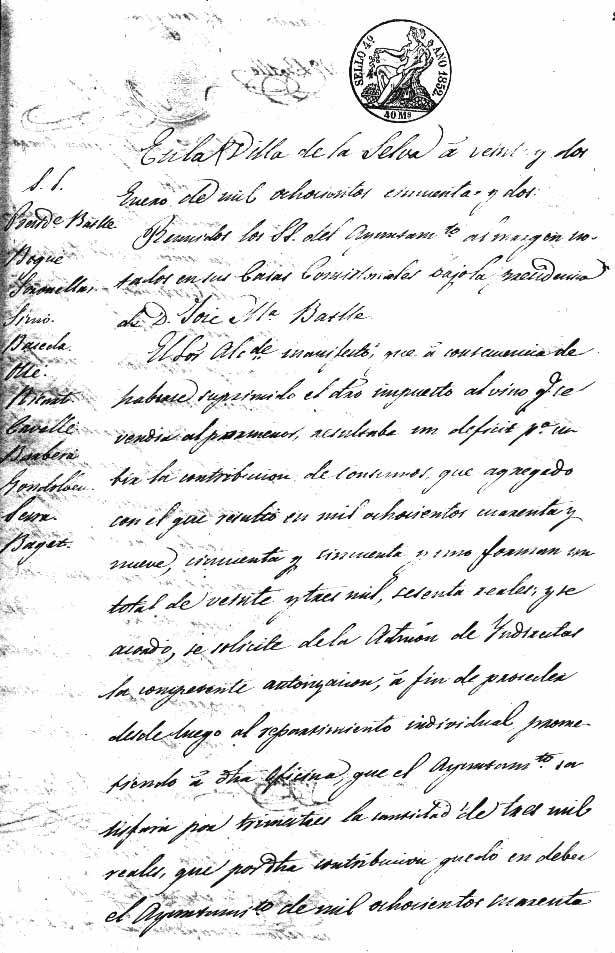 SELLO 4º AÑO 1852.
40 Ms
En la Villa de la Selva á veint y dos
Enero de mil ochocientos cincuenta y dos.
Reunidos los SS. del Ayuntamto al margen no-
tados en sus Casas Consistoriales bajo la presidencia
de D. José Ma Batlle.
El Sor Alcde manifestó, que á consecuencia de
haberse suprimido el dro impuesto al vino q se
vendia al por menor, resultaba un deficit pa cu-
brir la contribucion de consumos, que agregado
con el que resultó en mil ochocientos cuarenta y
nueve, cincuenta y cincuenta y uno forman un
total de veinte y tres mil, sesenta reales; y se
acordó, se solicite de la Admon de Yndirectas
la competente autorizacion, á fin de proceder
desde luego al repartimiento individual prome-
tiendo á dha oficina, que el Ayuntamto sa
tisfaria por trimestres la cantidad de tres mil
reales, que por dha contribucion quedó en deber
el Ayuntamto de mil ochocientos cuarenta
S. S.
Batlle
Bogué
Simó
Baseda
Ollé
Cavallé
Barberá
Serra
Baget